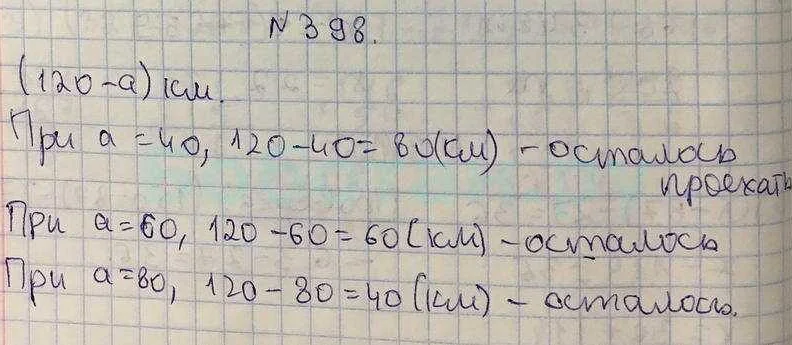 N 398.
(120-а) км.
При а =40, 120-40= 80(км) - осталось
проехать
При а=60, 120-60=60(км) - осталось
При а=80, 120-80=40(км) - осталось.